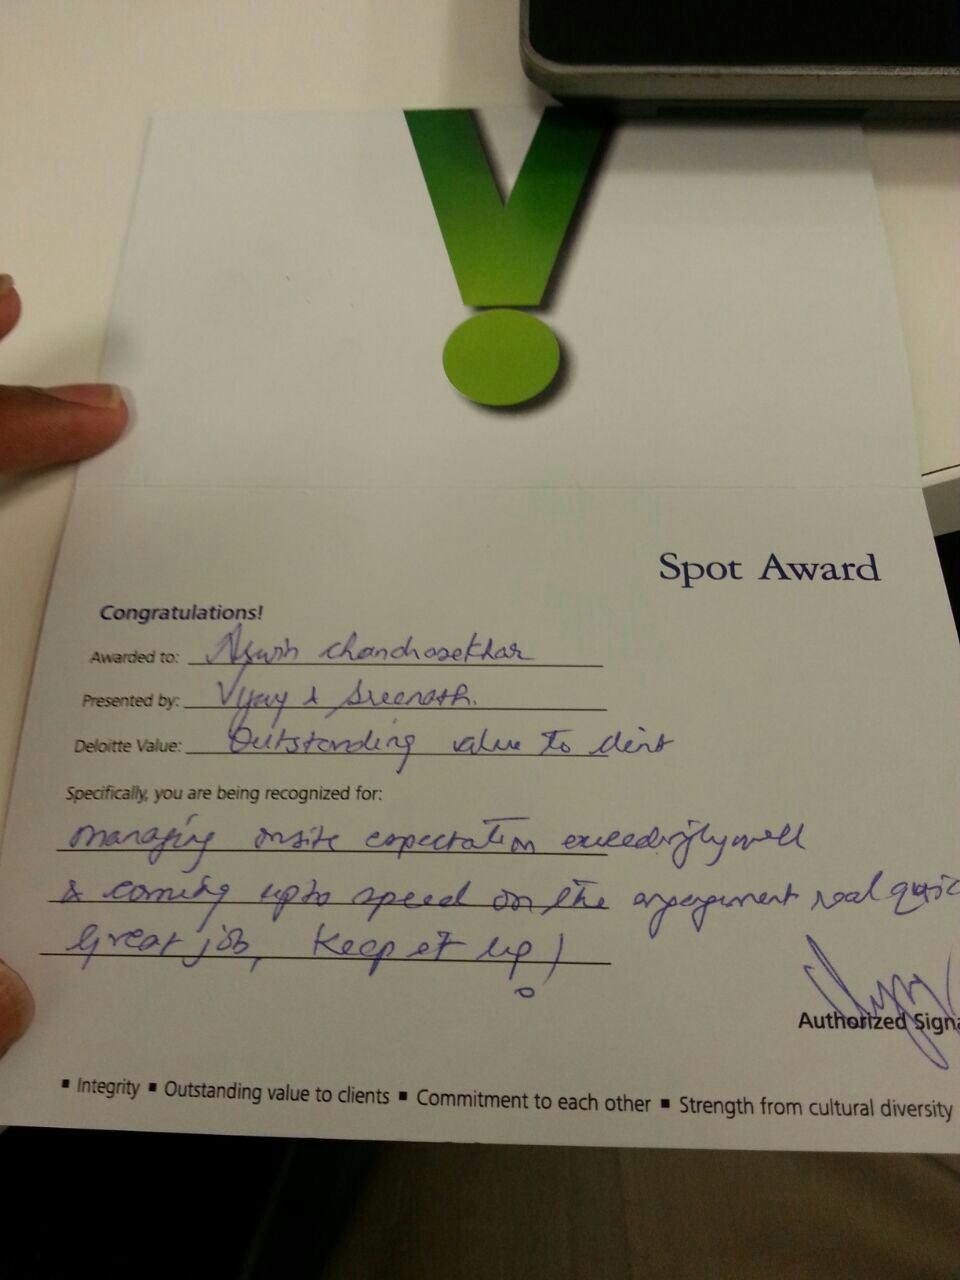 Spot Award
Congratulations!
Awarded to: Aswin Chandrasekhar
Presented by: Vijay & Sreenath.
Deloitte Value: Outstanding value to client
Specifically, you are being recognized for:
Managing onsite expectation exceedingly well
& coming upto speed on the engagement real quic
Great job, Keep it up!
Authorized Signa
▪ Integrity ▪ Outstanding value to clients ▪ Commitment to each other ▪ Strength from cultural diversity